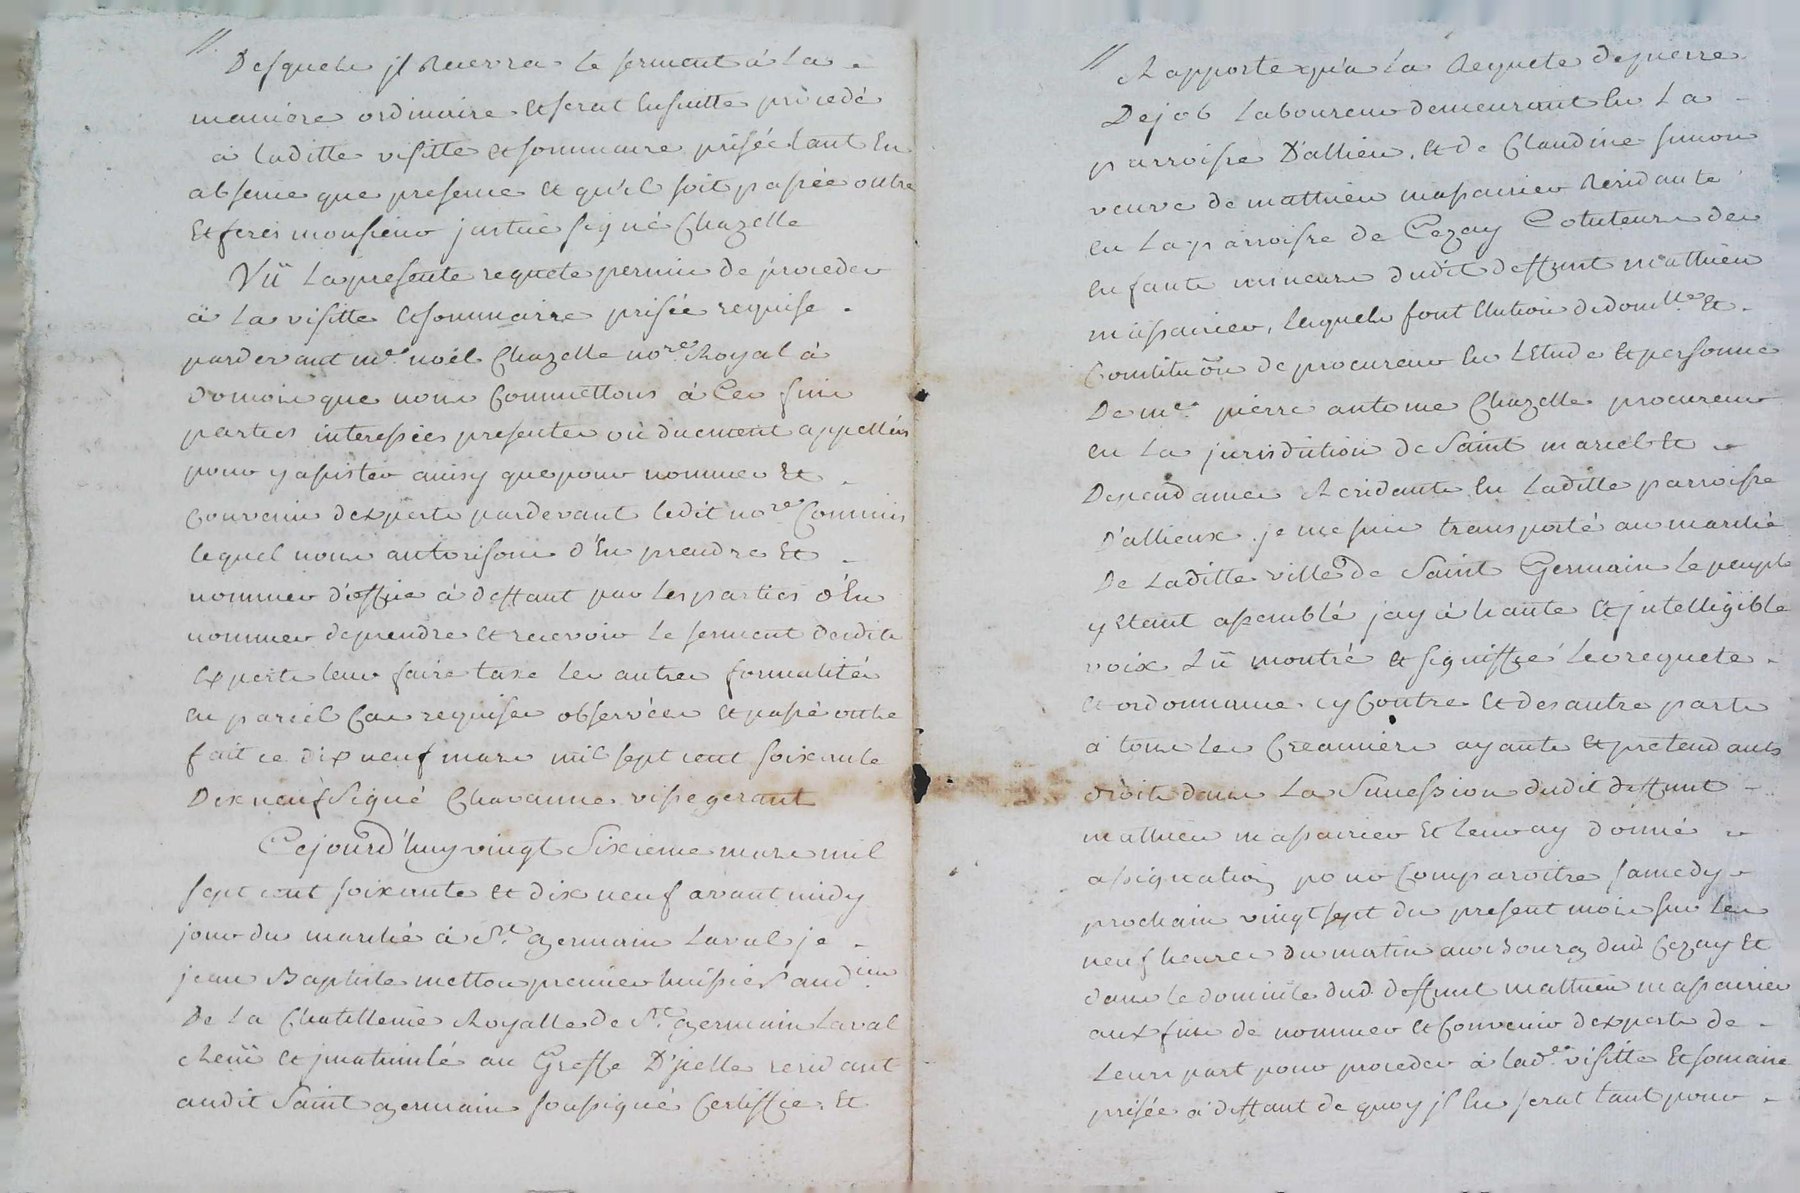 Desquels jl Recevra le serment à la
maniere ordinaire et serat Ensuitte procedé
à laditte visitte et sommaire prisée tant En
absence que presence et qu'il soit passée outre
Et feres monsieur justice signé Chazelle
Vü la presente requete permis de proceder
à la visitte et sommairre prisée requise
pardevant me noël Chazelle nore Royal à
que nous Commettons à Ces fins
parties interessées presentes où duement appellées
pour y assister ainsy que pour nommer Et
Convenir dexperts pardevant ledit nore Commis
lequel nous autorisons d'En prendre Et
nommer d'office à deffaut par les parties d'En
nommer de prendre et recevoir le serment desdits
Experts leur faire taxe les autres formalités
En pareil Cas requises observées et passé outre
fait ce dix neuf mars mil sept cent soixante
Dix neuf signé Chavanne vissegerant
Cejourd'huy vingt Sixieme mars mil
sept cent soixante et dix neuf avant midy
jour du marché à St germain Laval je
jean Baptiste metton premier huissier aud.ier
De la Chatellenie Royalle de St germain Laval
Receü et jmatriculé au Greffe D'jcelle residant
audit Saint germain soussigné Certiffie Et
Rapporte qu'a la Requete de pierre
Dejob Laboureur demeurant En la
parroisse D'allieu, et de Claudine simon
veuve de mathieu massacrier Residante
en la parroisse de Cezay Cotuteurs des
enfants mineurs dudit deffunt mathieu
massacrier, lesquels font Election de domlle Et
Constitution de procureur En L'Etude et personne
De me pierre antoine Chazelle procureur
en la jurisdiction de Saint marcel Et
Dependances Residante En laditte parroisse
D'allieux je me suis transporté au marché
De laditte ville de Saint Germain le peuple
y Etant assemblé jay à haute et jntelligible
voix Lü montré et signiffié les requete
et ordonnance cy Contre Et des autre parts
à tous les Creanciers ayants et pretendants
droits dans la Succession dudit deffunt
mathieu massacrier Et leur ay donné
assignation pour Comparoitre samedy
prochain vingt sept du present mois sur les
neuf heures du matin au Bourg dud. Cezay Et
dans le domicile dud. deffunt mathieu massacrier
aux fins de nommer et Convenir d'experts de
Leurs part pour proceder à lad.e visitte Et somaire
prisée à deffaut de quoy jl En serat tant pour